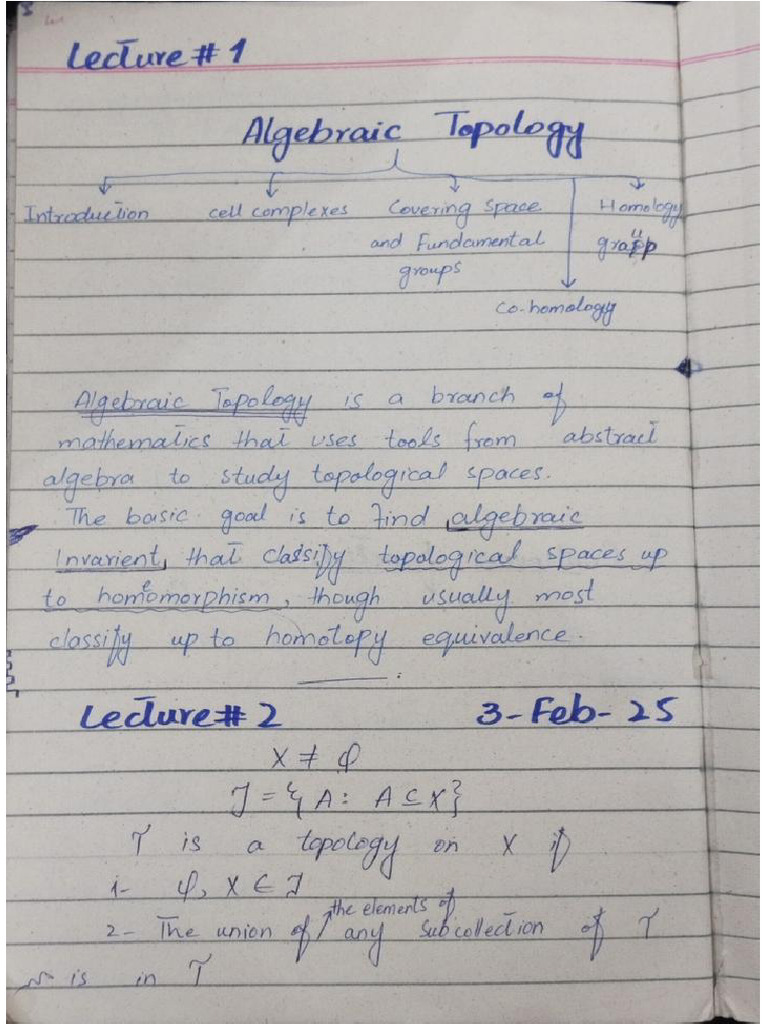 Lecture # 1
Algebraic Topology
Introduction
cell complexes
Covering space
and Fundamental
groups
Homology
group
Co-homology
Algebraic Topology is a branch of
mathematics that uses tools from abstract
algebra to study topological spaces.
The basic goal is to find algebraic
Invarient, that classify topological spaces up
to homeomorphism, though usually most
classify up to homotopy equivalence.
Lecture # 2 3-Feb-25
X ≠ φ
J = { A : A ⊆ X }
T is a topology on X if
1- φ, X ∈ J
2- The union of the elements of any subcollection of T
is in T